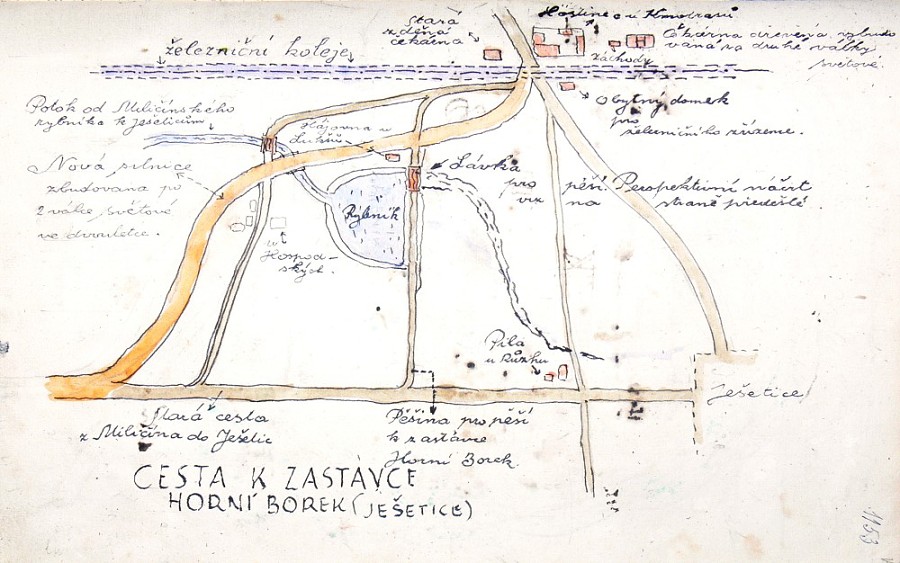 Stará
zděná
čekárna
Hostinec u Kmotrasů
Čekárna dřevěná, vybudo
vaná za druhé války
světové.
Záchody
železniční koleje
Obytný domek
pro
železničního zřízence.
Potok od Miličínského
rybníka k Ješeticům
Hájovna u
Nová silnice
zbudovaná po
2 válce světové
ve dvacetce.
Lávka
pro pěší. Perspektivní náčrt
viz na straně předešlé.
Rybník
u
Hospod-
ských.
Pila
u Růzhu
Ješetice
Stará cesta
z Miličína do Ješetic
Pěšina pro pěší
k zastávce
Horní Borek.
CESTA K ZASTÁVCE
HORNÍ BOREK (JEŠETICE)
1153